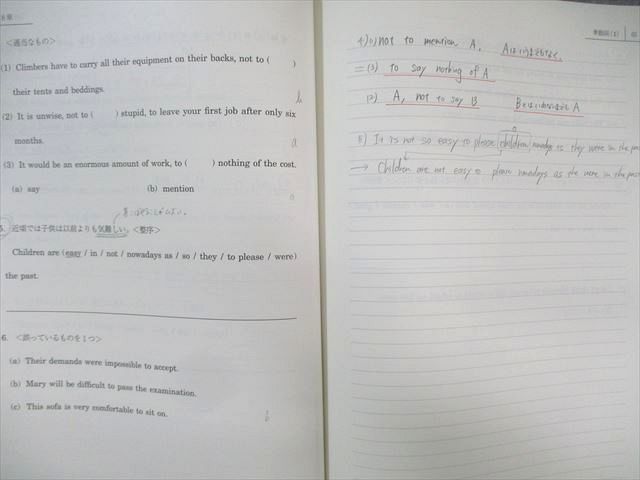 <適当なもの>
(1) Climbers have to carry all their equipment on their backs, not to (  )
their tents and beddings.
b
(2) It is unwise, not to (  ) stupid, to leave your first job after only six
months.
a
(3) It would be an enormous amount of work, to (  ) nothing of the cost.
a
(a) say (b) mention
5. 近頃では子供は以前よりも気難しい。<整序>
Children are (easy / in / not / nowadays as / so / they / to please / were)
the past.
6. <誤っているものを1つ>
(a) Their demands were impossible to accept.
(b) Mary will be difficult to pass the examination.
(c) This sofa is very comfortable to sit on.
b
準動詞(1)
4) (1) not to mention A, Aは言うまでもなく、
= (3) to say nothing of A
(2) A, not to say B Bとは言わないまでも A
5) It is not so easy to please children nowadays as they were in the past
→ Children are not easy to please nowadays as the were in the past